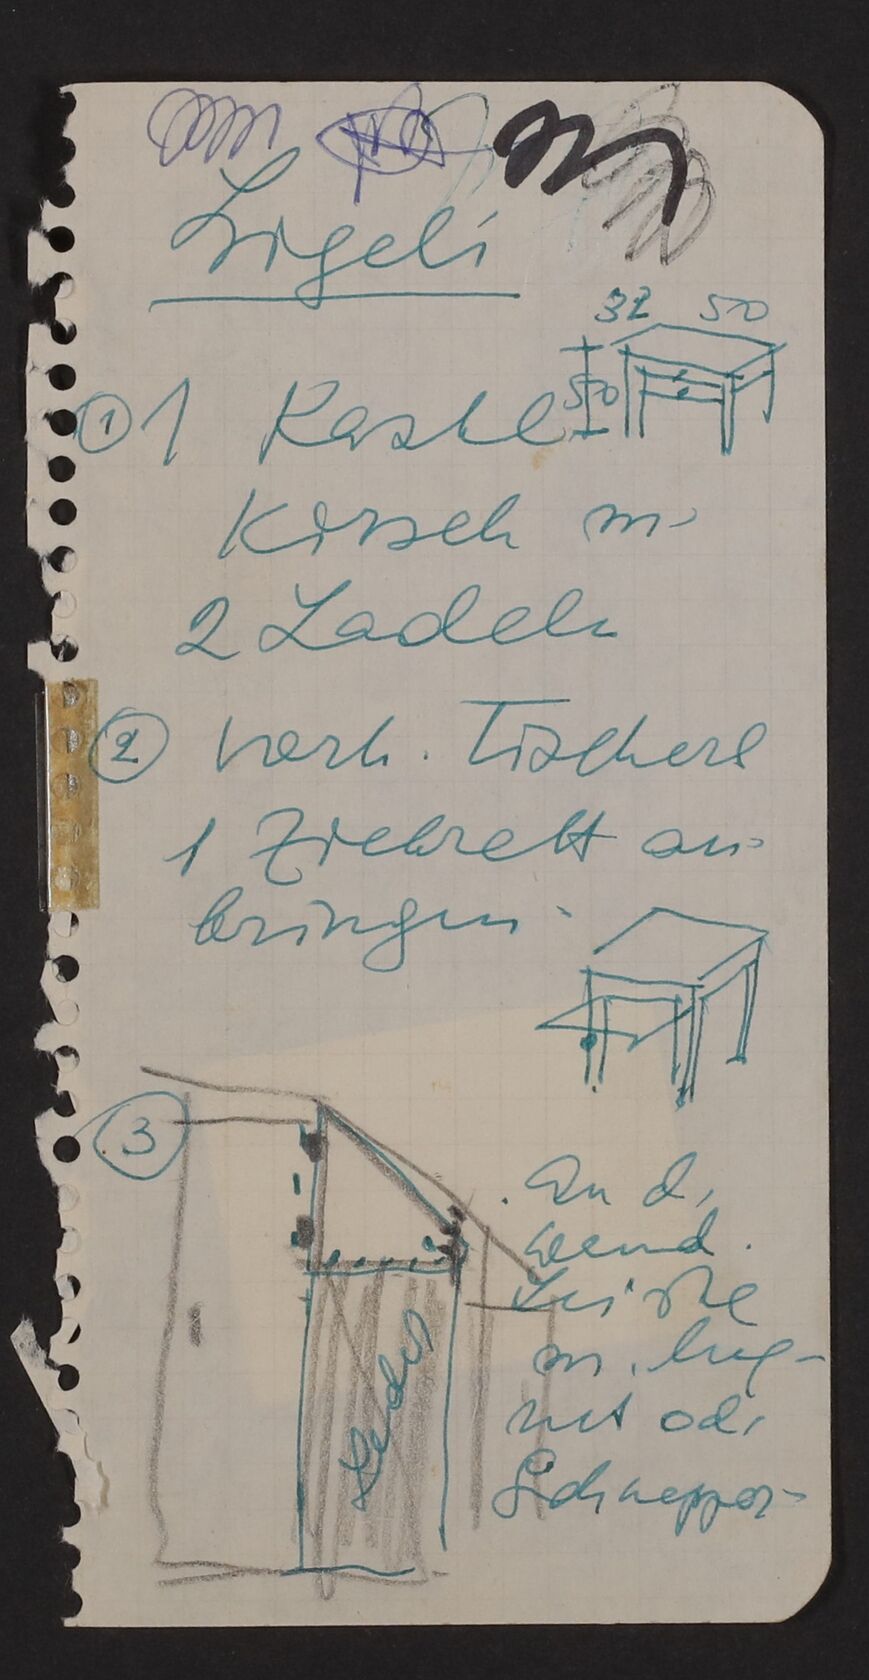 Sigeli
32 50
① 1 Kastl
50
Kirsch m.
2 Ladeln
② vorh. Tischerl
1 Ziehbrett an-
bringen.
③
An d.
Wand.
Leiste
m. Mag-
net od.
Schnapper-
Leder